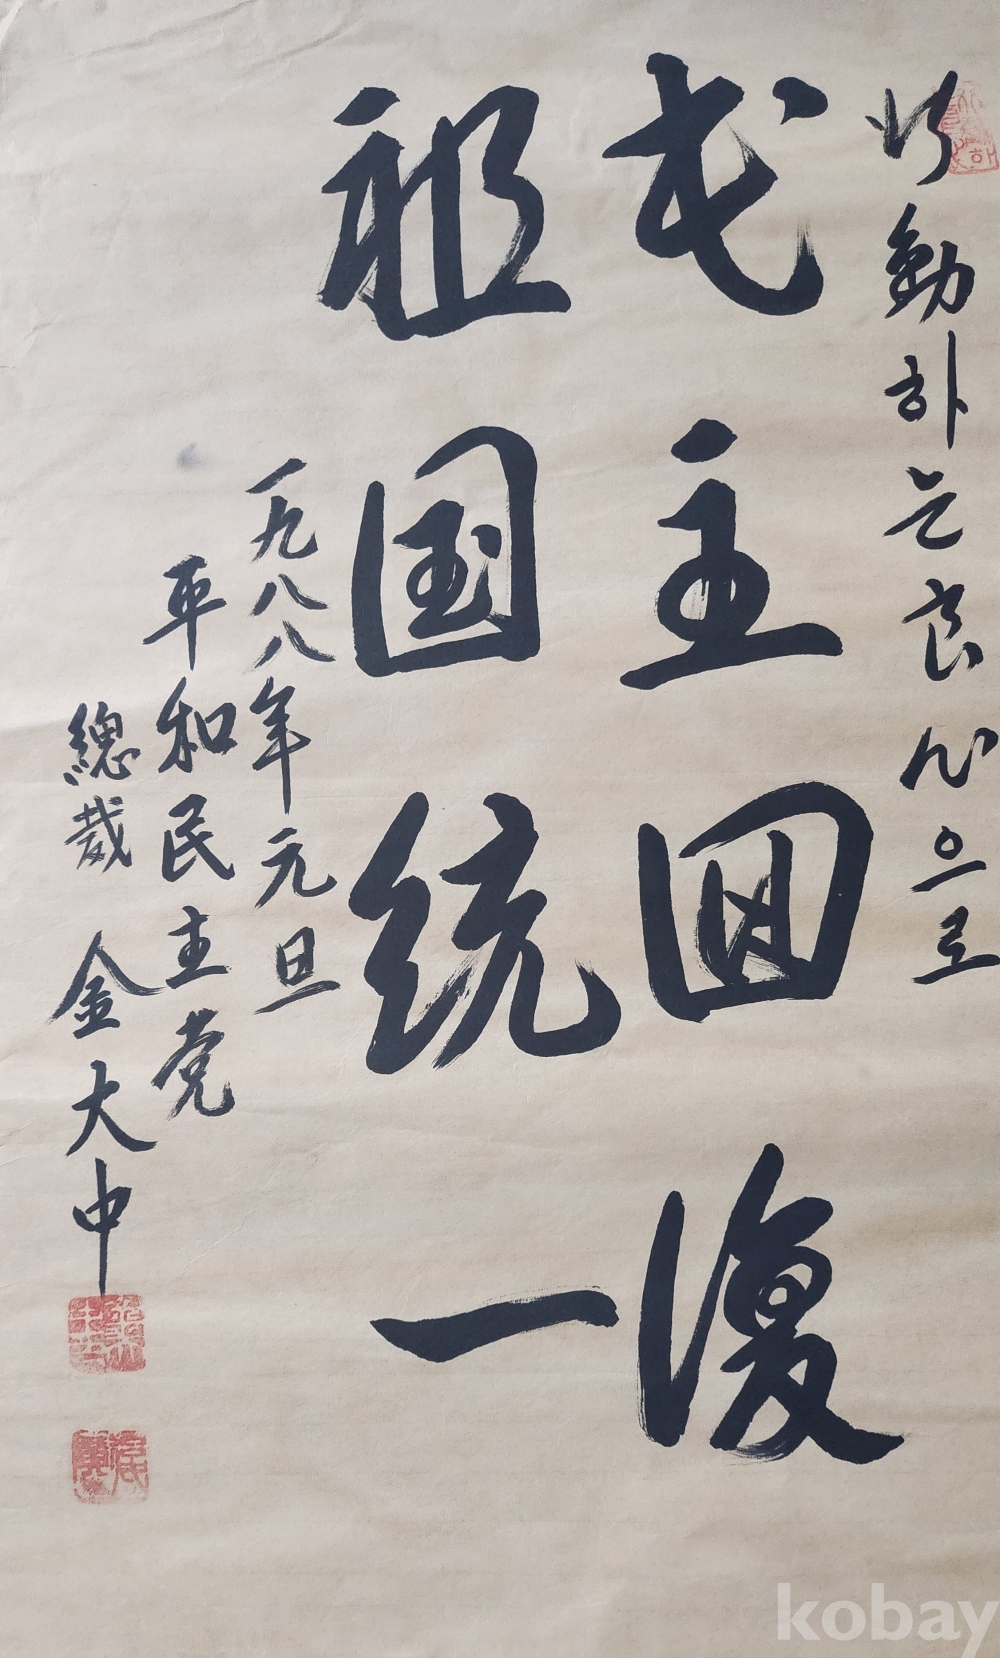 行動하는良心으로
民主回復
祖国统一
一九八八年元旦
平和民主党
總裁 金大中
kobay